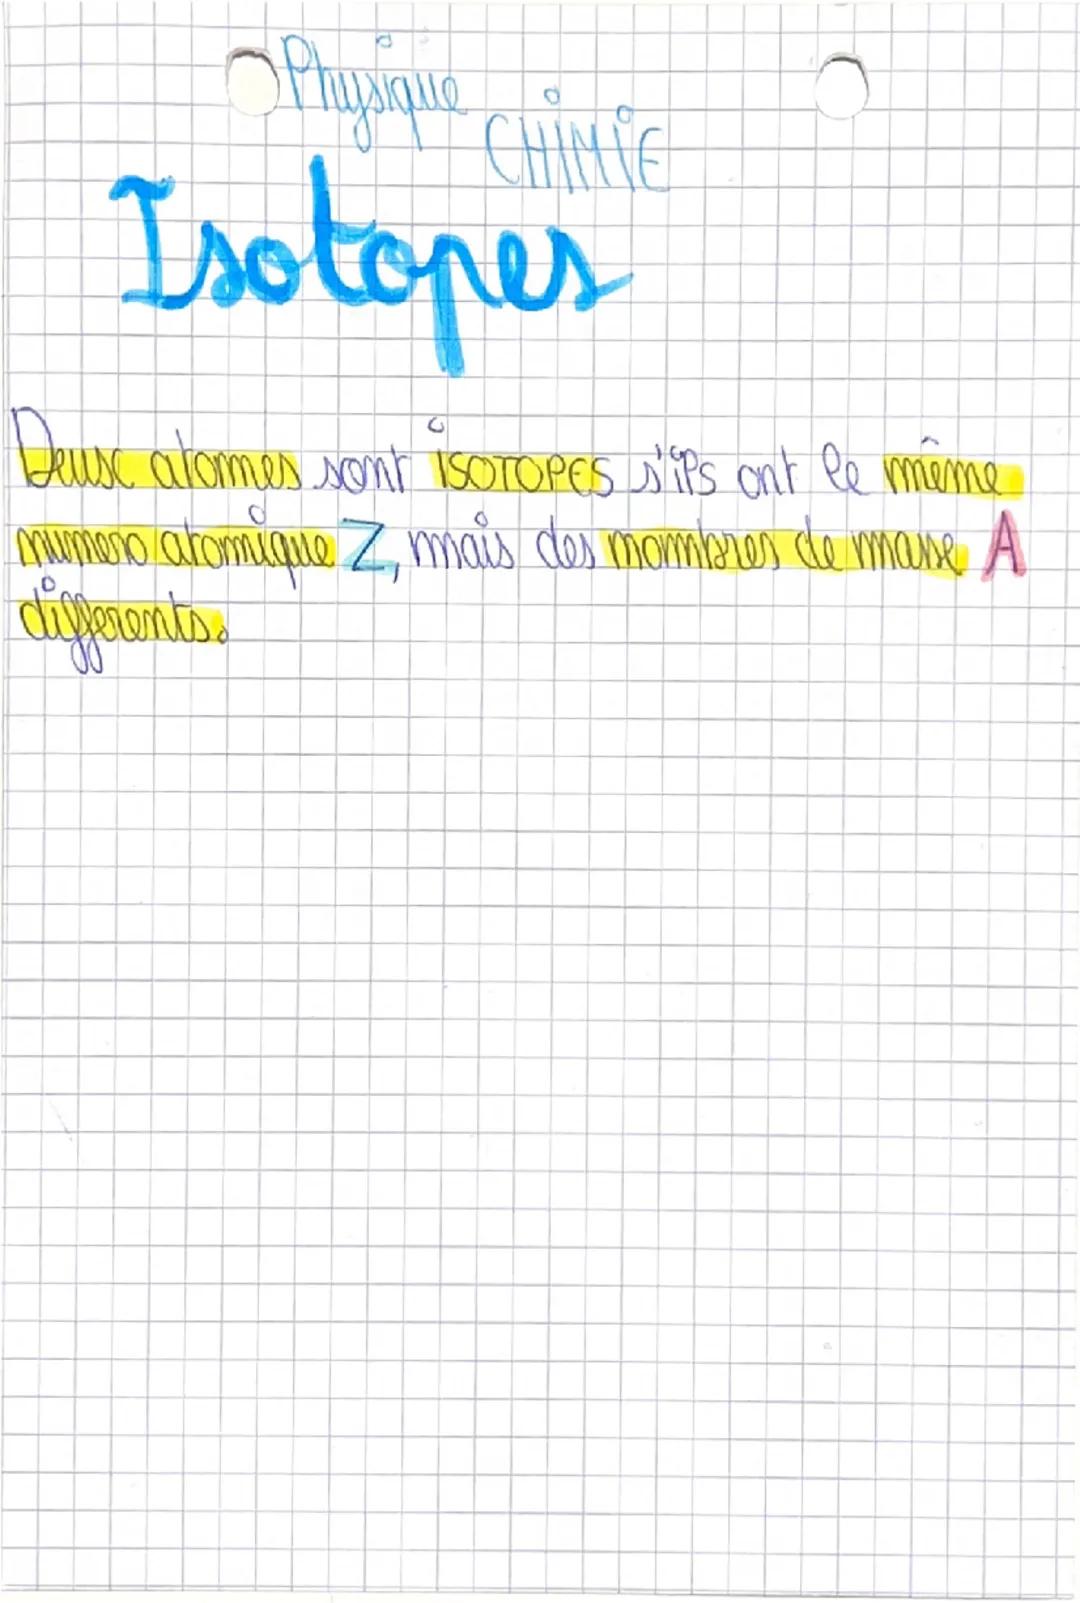 Physique
CHIMIE
Isotopes
Deux atomes sont ISOTOPES s'ils ont le même
numero atomique Z, mais des nombres de masse A
differents.